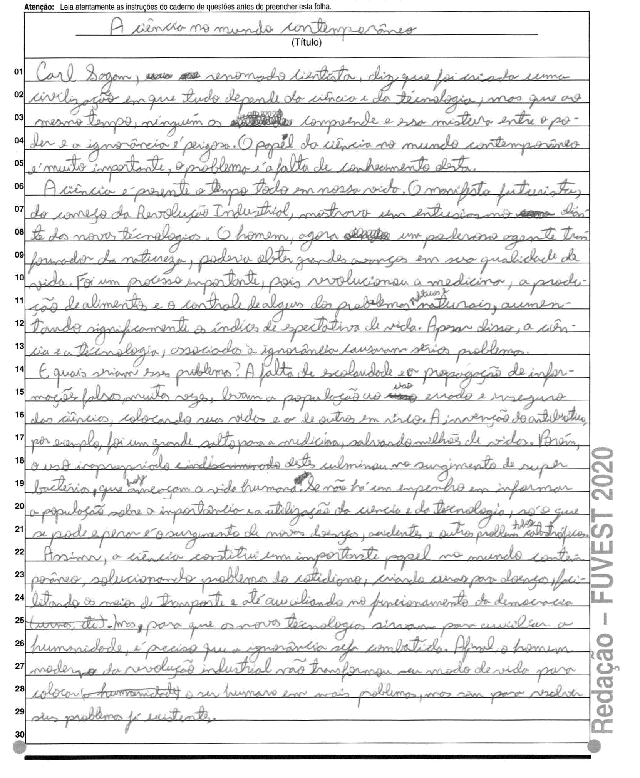 Atenção: Leia atentamente as instruções do caderno de questões antes de preencher esta folha.
A ciência no mundo contemporâneo
(Título)
01 Carl Sagan, renomado cientista, diz que foi criada uma
02 civilização em que tudo depende da ciência e da técnologia, mas que ao
03 mesmo tempo, ninguém as compreende e essa mistura entre o po-
04 der e a ignorância é perigosa. O papel da ciência no mundo contemporâneo
05 é muito importante, o problema é a falta de conhecimento desta.
06 A ciência é presente o tempo todo em nossa vida. O manifesto futurista,
07 do começo da Revolução Industrial, mostrava um entusiasmo dian-
08 te das novas técnologias. O homem, agora um poderoso agente trans
09 formador da natureza, poderia obter grandes avanços em sua qualidade de
10 vida. Foi um processo importante, pois revolucionou a medicina, a produ-
11 ção de alimentos e o controle de alguns dos problemas naturais, aumen-
12 tando significamente os índices de espectativa de vida. Apesar disso, a ciên-
13 cia e a técnologia, associados à ignorância causaram sérios problemas.
14 E quais seriam esses problemas? A falta de escolaridade e a propagação de infor-
15 mações falsas, muitas vezes, levam a população ao uso errado e inseguro
16 das ciências, colocando suas vidas e a de outros em risco. A invenção do antibiótico,
17 por exemplo, foi um grande salto para a medicina, salvando milhões de vidas. Porém,
18 o uso inapropriado indiscriminado destes culminou no surgimento de super
19 bactéria, que hoje ameaçam a vida humana. Se não há um empenho em informar
20 a população sobre a importância e a utilização da ciência e da tecnologia, só o que
21 se pode esperar é o surgimento de novas doenças, acidentes e outros problemas catastróficos.
22 Assim, a ciência constitui um importante papel no mundo contem
23 porâneo, solucionando problemas do cotidiano, criando curas para doenças, faci-
24 litando os meios de transporte e até auxiliando no funcionamento da democracia
25 Mas, para que as novas técnologias sirvam para auxiliar a
26 humanidade, é preciso que a ignorância seja combatida. Afinal o homem
27 moderno da revolução industrial não transformou seu modo de vida para
28 colocar a humanidade o ser humano em mais problemas, mas sem para resolver
29 seus problemas já existentes.
30
Redação – FUVEST 2020